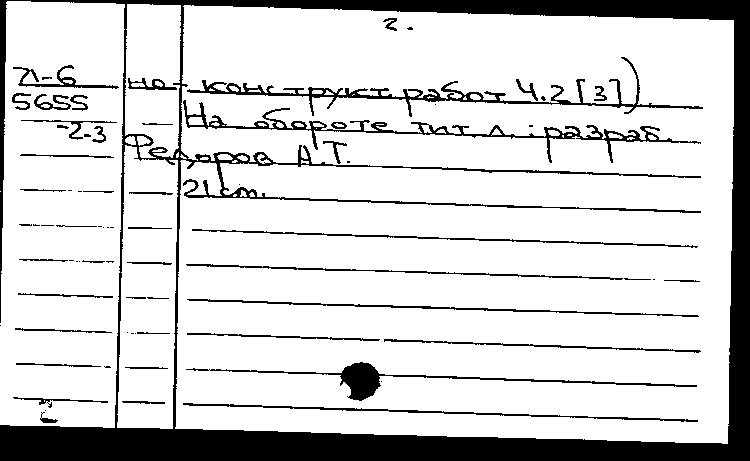 2.
Л-6 но-конструкт. работ Ч.2 [3])
5655 На обороте тит. л.: разраб.
-2-3 Федоров А.Т.
21 cm.
2